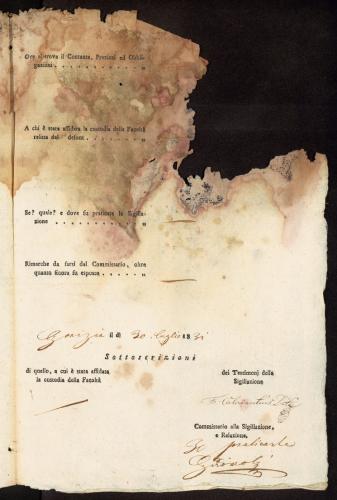 Ove si trova il Contante, Preziosi ed Obbli-
gazioni . . . . . . . . . . „
A chi è stata affidata la custodia della Facoltà
relitta dal defont. . . . . . . . „
Se? quale? e dove fu praticata la Sigilla-
zione . . . . . . . . . . . „
Rimarche da farsi dal Commissario, oltre
quanto finora fu esposto . . . . . „
Gorizia il dì 30. Luglio 1831
Sottoscrizioni
di quello, a cui è stata affidata
la custodia della Facoltà
dei Testimonj della
Sigillazione
Commissario alla Sigillazione,
e Relazione.